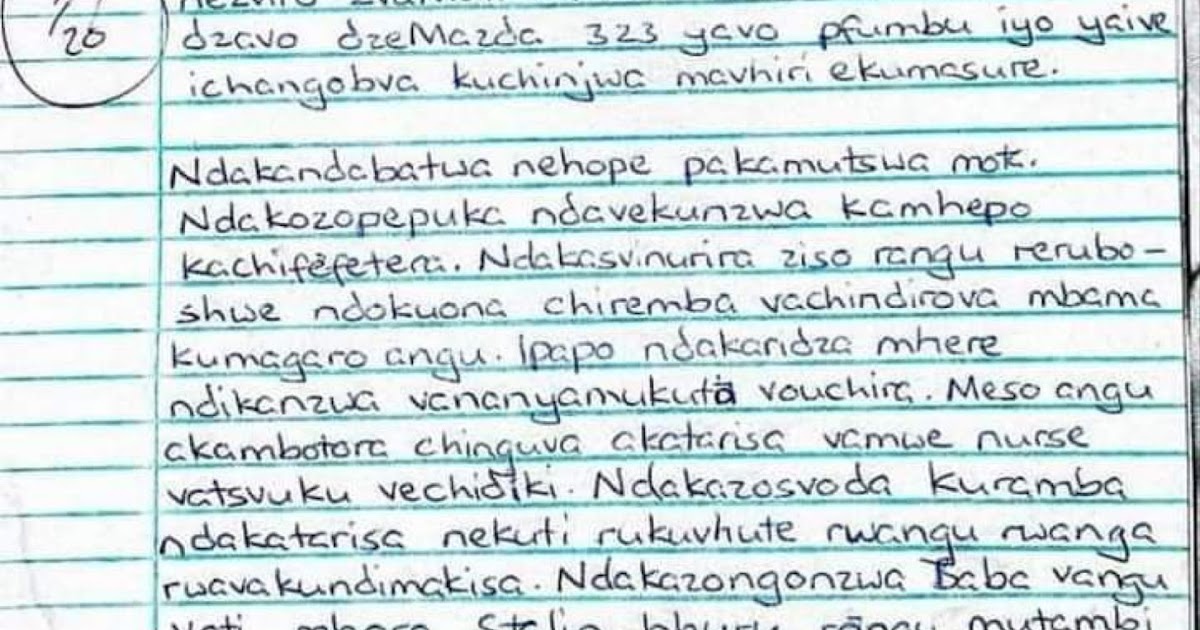 20
dzavo dzeMazda 323 yavo pfumbu iyo yaive
ichangobva kuchinjwa mavhiri ekumasure.
Ndakandabatwa nehope pakamutswa mota.
Ndakozopepuka ndavekunzwa kamhepo
kachifefetera. Ndakasvinurira ziso rangu rerubo-
shwe ndokuona chiremba vachindirova mbama
kumagaro angu. Ipapo ndakaridza mhere
ndikanzwa vananyamukuta vouchira. Meso angu
akambotora chinguva akatarisa vamwe nurse
vatsvuku vechidiki. Ndakazosvoda kuramba
ndakatarisa nekuti rukuvhute rwangu rwanga
rwavakundimakisa. Ndakazongonzwa Baba vangu
mutambi